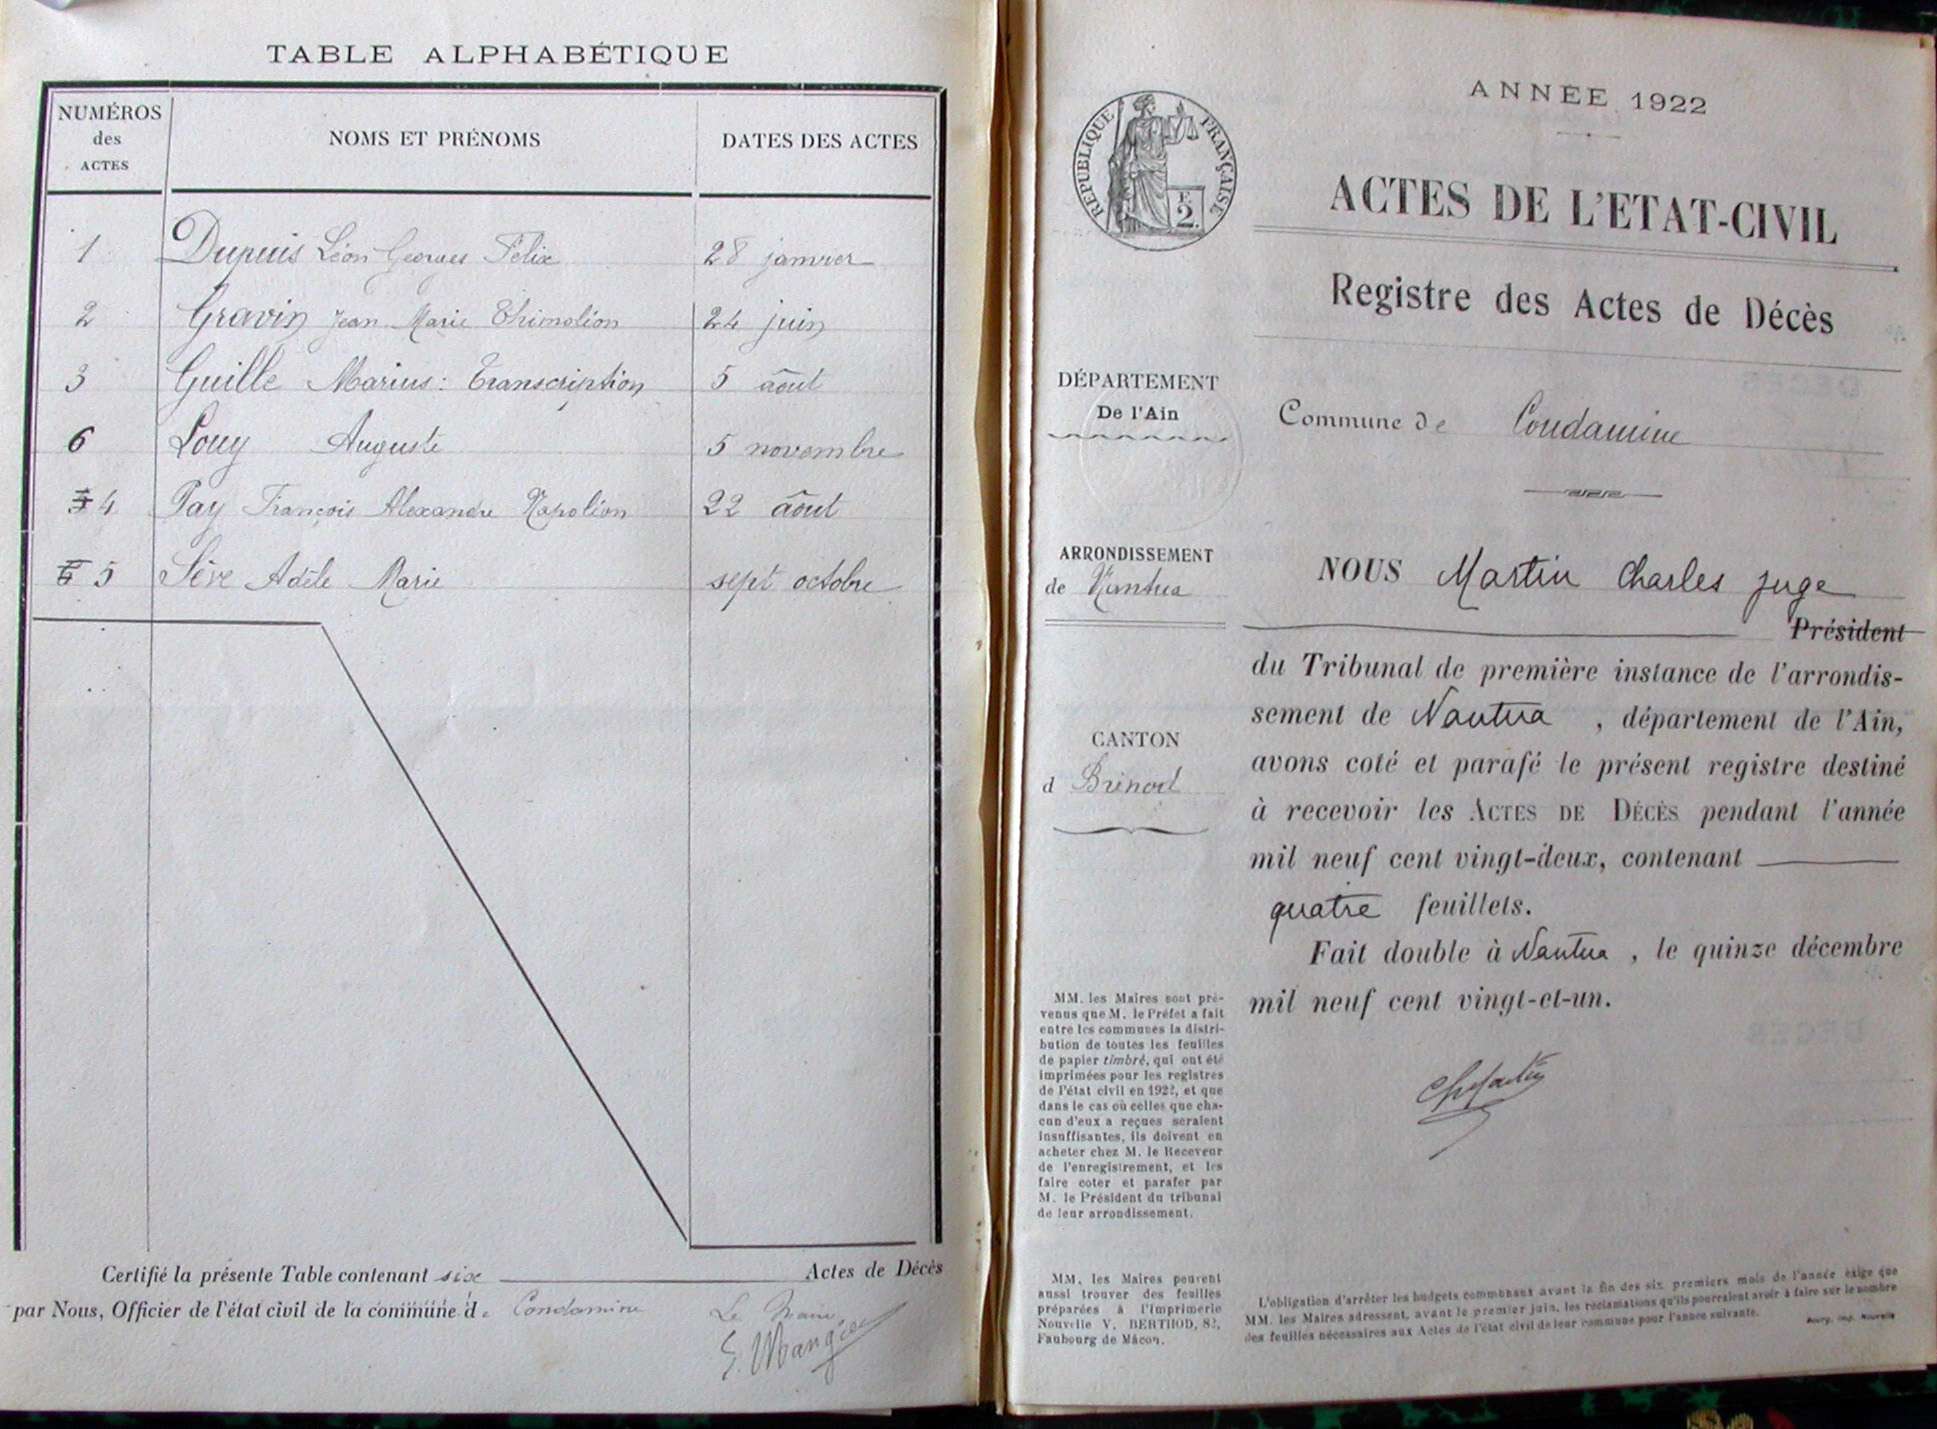 TABLE ALPHABÉTIQUE
NUMÉROS des ACTES
NOMS ET PRÉNOMS
DATES DES ACTES
1 Dupuis Léon Georges Félix 28 janvier
2 Gravin Jean Marie Thimoléon 24 juin
3 Guille Marius: Transcription 5 août
6 Louy Auguste 5 novembre
4 Pay François Alexandre Napoléon 22 août
5 Sève Adèle Marie sept octobre
Certifié la présente Table contenant six Actes de Décès
par Nous, Officier de l'état civil de la commune d. Condamine Le Maire
ANNÉE 1922
RÉPUBLIQUE FRANÇAISE
F. 2.
ACTES DE L'ETAT-CIVIL
Registre des Actes de Décès
DÉPARTEMENT
De l'Ain
Commune de Condamine
ARRONDISSEMENT
de Nantua
CANTON
d Brénod
NOUS Martin Charles juge
Président
du Tribunal de première instance de l'arrondis-
sement de Nantua, département de l'Ain,
avons coté et parafé le présent registre destiné
à recevoir les ACTES DE DÉCÈS pendant l'année
mil neuf cent vingt-deux, contenant
quatre feuillets.
Fait double à Nantua, le quinze décembre
mil neuf cent vingt-et-un.
MM. les Maires sont pré-
venus que M. le Préfet a fait
entre les communes la distri-
bution de toutes les feuilles
de papier timbré, qui ont été
imprimées pour les registres
de l'état civil en 1922, et que
dans le cas où celles que cha-
cun d'eux a reçues seraient
insuffisantes, ils doivent en
acheter chez M. le Receveur
de l'enregistrement, et les
faire coter et parafer par
M. le Président du tribunal
de leur arrondissement.
MM. les Maires peuvent
aussi trouver des feuilles
préparées à l'Imprimerie
Nouvelle V. BERTHOD, 82,
Faubourg de Mâcon.
L'obligation d'arrêter les budgets communaux avant la fin des six premiers mois de l'année exige que
MM. les Maires adressent, avant le premier juin, les réclamations qu'ils pourraient avoir à faire sur le nombre
des feuilles nécessaires aux Actes de l'état civil de leur commune pour l'année suivante.
Bourg, Imp. Nouvelle